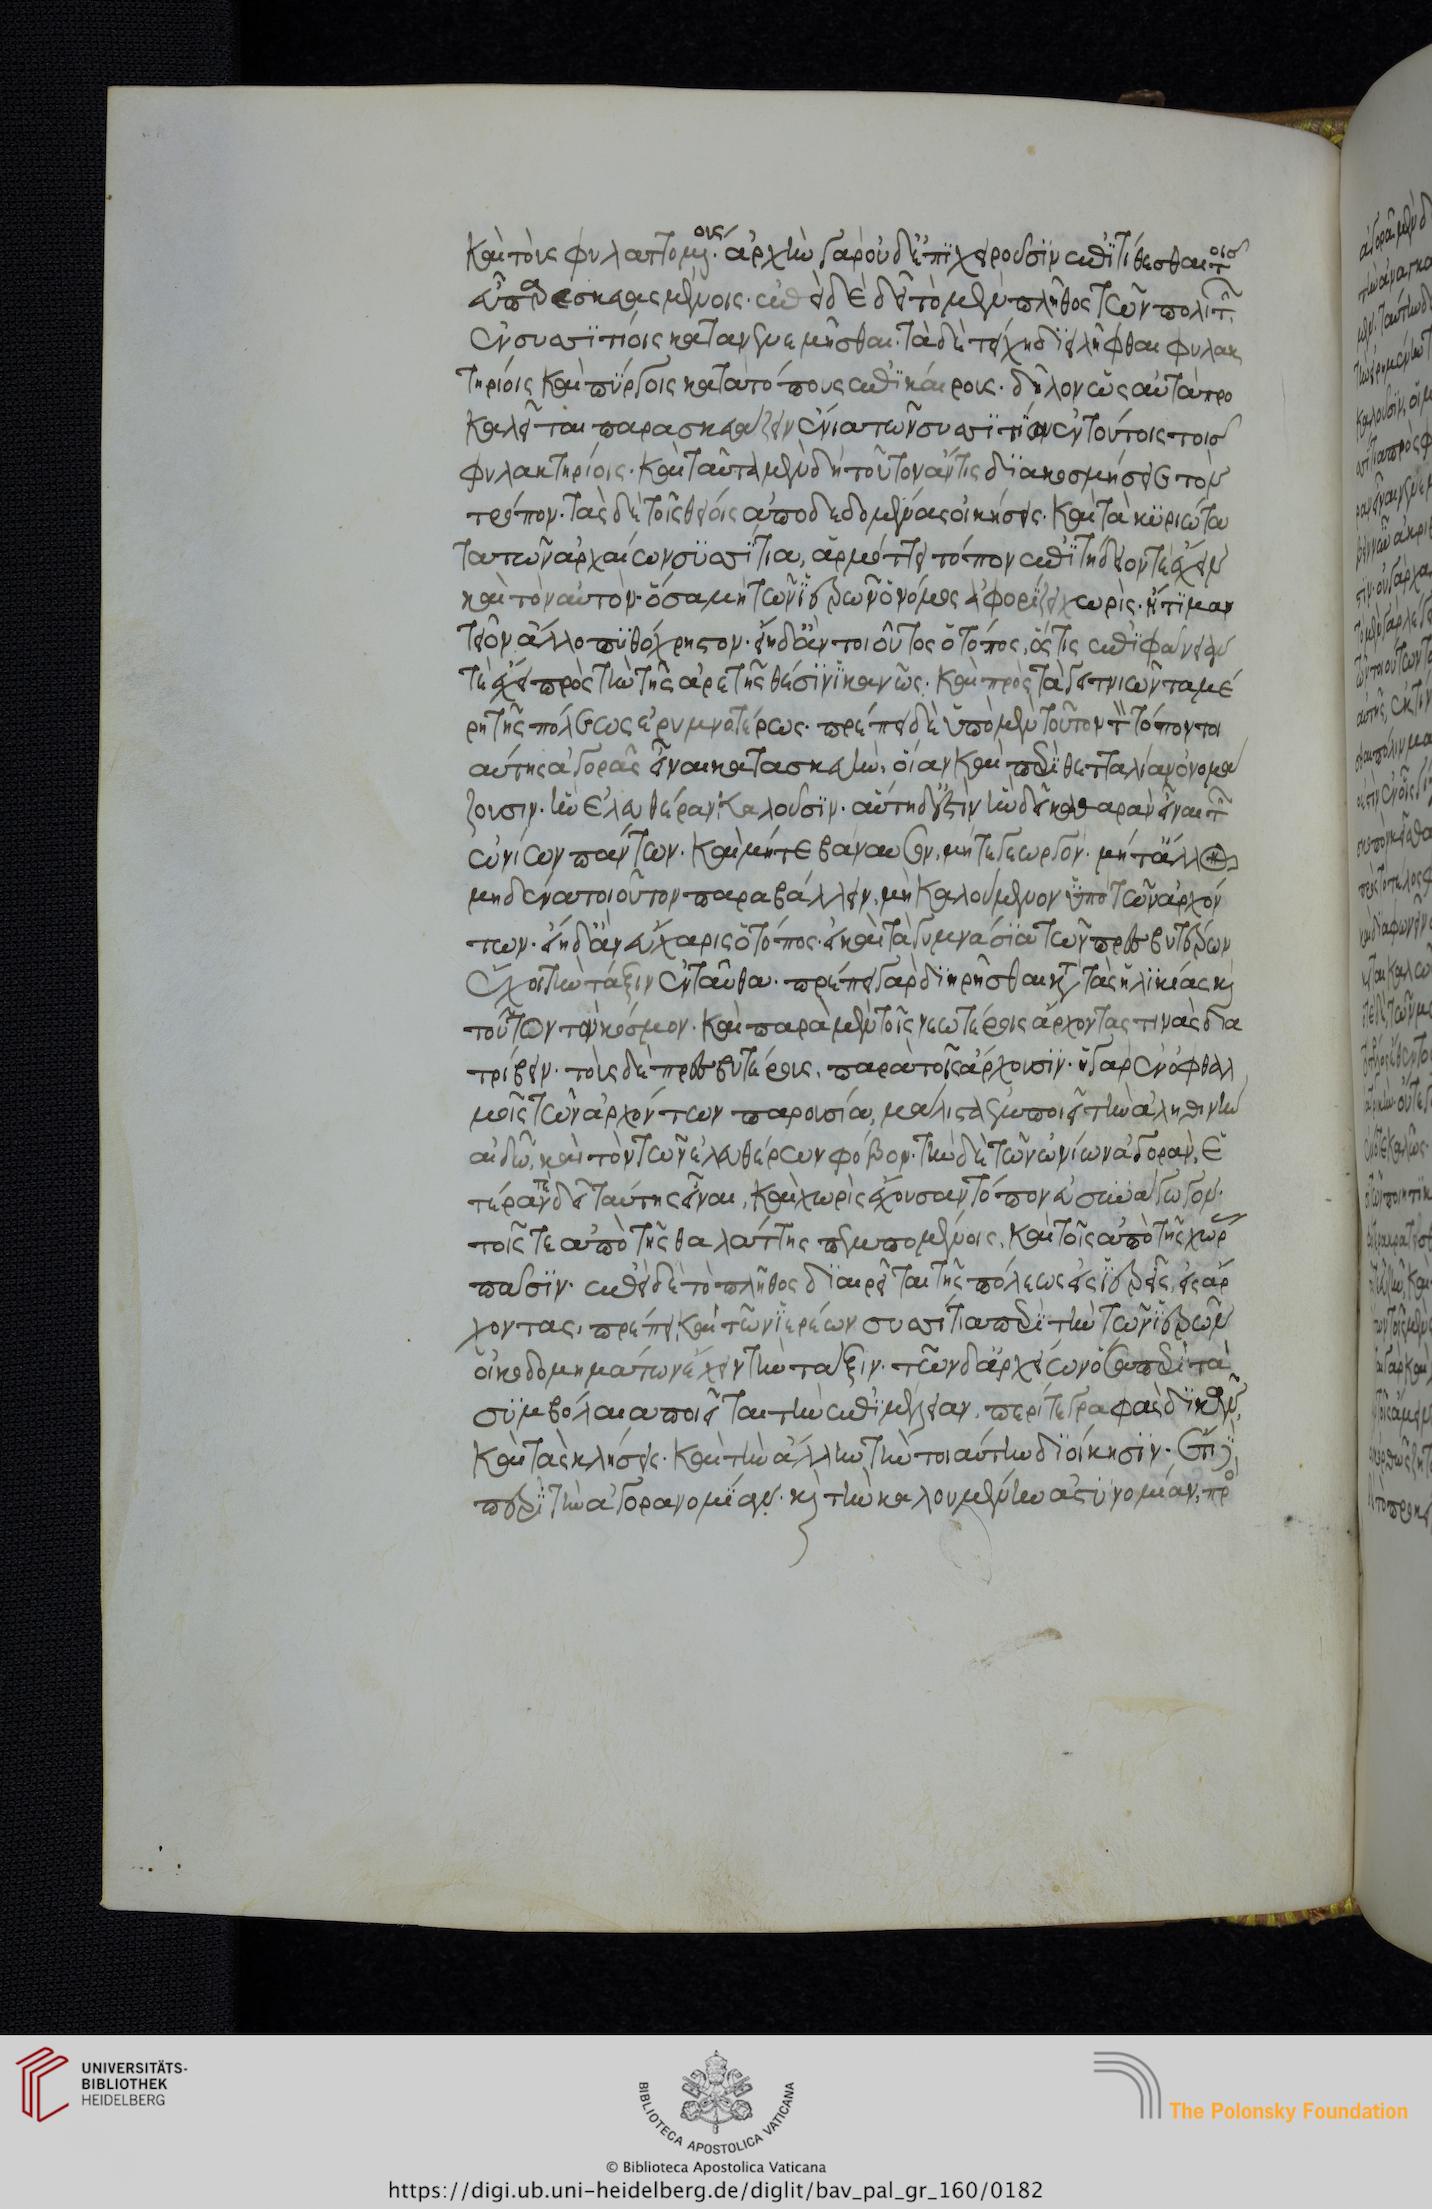 καὶ τοῖς φυλαττομένοις. ἀρχὴν γὰρ οὐδ' ἐπιχειροῦσιν ἐπιτίθεσθαι τοῖς
εὖ παρεσκευασμένοις. ἐπεὶ δὲ δεῖ τὸ μὲν πλῆθος τῶν πολιτῶν
ἐν συσσιτίοις κατανενεμῆσθαι. τὰ δὲ τείχη διειλῆφθαι φυλακ
τηρίοις καὶ πύργοις κατὰ τόπους ἐπικαίρους. δῆλον ὡς αὐτὰ προ
καλεῖται παρασκευάζειν ἔνια τῶν συσσιτίων ἐν τούτοις τοῖς
φυλακτηρίοις. καὶ ταῦτα μὲν δὴ τοῦτον ἄν τις διακοσμήσειε τὸν
τρόπον. τὰς δὲ τοῖς θείοις ἀποδεδομένας οἰκήσεις. καὶ τὰ κυριώτα
τα τῶν ἀρχαίων συσσίτια, ἁρμόττει τόπον ἐπιτήδειόν τε ἔχειν
καὶ τὸν αὐτόν. ὅσα μὴ τῶν ἱερῶν ὁ νόμος ἀφορίζει χωρὶς. ἤ τι μαν
τεῖον ἄλλο πυθόχρηστον. εἴη δ' ἄν τοιοῦτος ὁ τόπος, ὅστις ἐπιφάνειάν
τε ἔχει πρὸς τὴν τῆς ἀρετῆς θέσιν ἱκανῶς. καὶ πρὸς τὰ γειτνιῶντα μέ
ρη τῆς πόλεως ἐρυμνοτέρως. πρέπει δὲ ὑπὸ μὲν τοῦτον τὸν τόπον τοι
αύτης ἀγορᾶς εἶναι κατασκευὴν, οἵαν καὶ περὶ θετταλίαν ὀνομά
ζουσιν. ἣν ἐλευθέραν καλοῦσιν. αὕτη δ' ἐστὶν ἣν δεῖ καθαρὰν εἶναι τῶν
ὠνίων πάντων. καὶ μήτε βάναυσον, μήτε γεωργόν. μήτ' ἄλλον
μηδένα τοιοῦτον παραβάλλειν, μὴ καλούμενον ὑπὸ τῶν ἀρχόν
των. εἴη δ' ἂν εὔχαρις ὁ τόπος. εἰ καὶ τὰ γυμνάσια τῶν πρεσβυτέρων
ἔχοι τὴν τάξιν ἐνταῦθα. πρέπει γὰρ διῃρῆσθαι κατὰ τὰς ἡλικίας καὶ
τοῦτον τὸν κόσμον. καὶ παρὰ μὲν τοῖς νεωτέροις ἄρχοντας τινὰς δια
τρίβειν. τοὺς δὲ πρεσβυτέρους, παρὰ τοῖς ἄρχουσιν. ἡ γὰρ ἐν ὀφθαλ
μοῖς τῶν ἀρχόντων παρουσία, μάλιστα ἐμποιεῖ τὴν ἀληθινὴν
αἰδῶ, καὶ τὸν τῶν ἐλευθέρων φόβον. τὴν δὲ τῶν ὠνίων ἀγορὰν, ἑ
τέραν τε δεῖ ταύτης εἶναι, καὶ χωρὶς ἔχουσαν τόπον εὐσυνάγωγον.
τοῖς τε ἀπὸ τῆς θαλάττης πεμπομένοις, καὶ τοῖς ἀπὸ τῆς χώρας
πᾶσιν. ἐπεὶ δὲ τὸ πλῆθος διαιρεῖται τῆς πόλεως εἰς ἱερεῖς, εἰς ἄρ
χοντας, πρέπει καὶ τῶν ἱερέων συσσίτια περὶ τὴν τῶν ἱερῶν
οἰκοδομημάτων ἔχειν τὴν τάξιν. τῶν δ' ἀρχείων ὅσα περὶ τὰ
συμβόλαια ποιεῖται τὴν ἐπιμέλειαν, περί τε γραφὰς δικῶν,
καὶ τὰς κλήσεις. καὶ τὴν ἄλλην τὴν τοιαύτην διοίκησιν. ἔτι δὲ
περὶ τὴν ἀγορανομίαν. καὶ τὴν καλουμένην ἀστυνομίαν, πρὸς
UNIVERSITÄTS-
BIBLIOTHEK
HEIDELBERG
BIBLIOTECA APOSTOLICA VATICANA
The Polonsky Foundation
© Biblioteca Apostolica Vaticana
https://digi.ub.uni-heidelberg.de/diglit/bav_pal_gr_160/0182